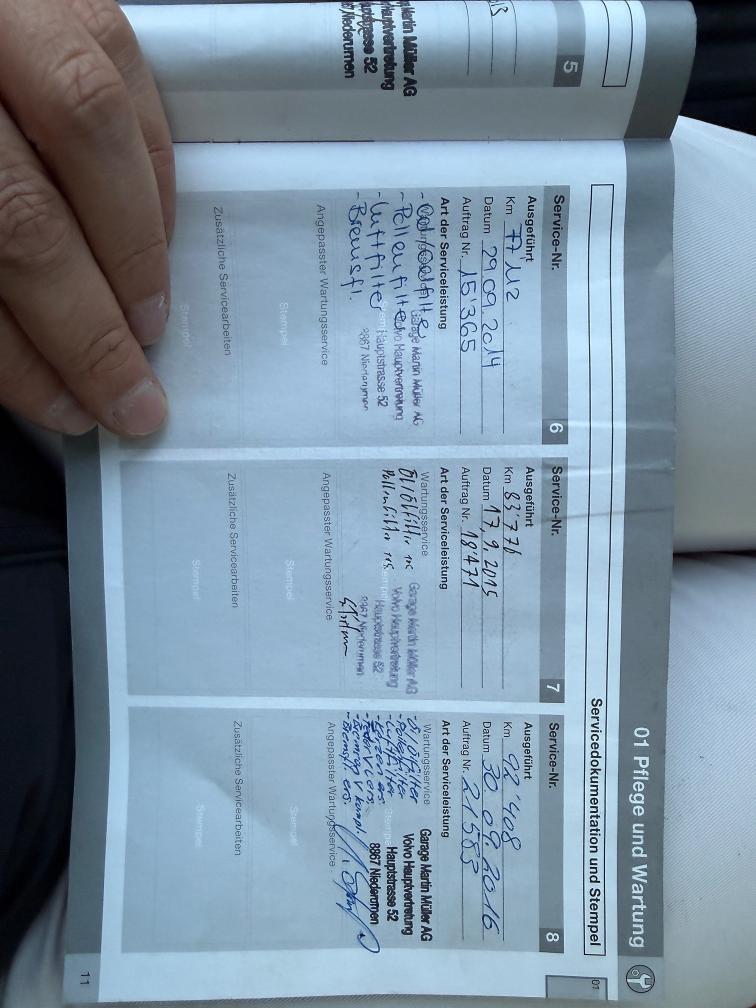 5
Martin Müller AG
52
Niederurnen
01 Pflege und Wartung
Servicedokumentation und Stempel
01
Service-Nr. 6
Ausgeführt
Km 77'112
Datum 29.09.2014
Auftrag Nr. 15'365
Art der Serviceleistung
- Pollenfilter
- Luftfilter
- Bremsfl.
Garage Martin Müller AG
Volvo Hauptvertretung
Hauptstrasse 52
8867 Niederurnen
Angepasster Wartungsservice
Stempel
Zusätzliche Servicearbeiten
Stempel
Service-Nr. 7
Ausgeführt
Km 83'776
Datum 17.9.2015
Auftrag Nr. 18'471
Art der Serviceleistung
Wartungsservice
Öl/Ölfilter ers
Pollenfilter ers.
Garage Martin Müller AG
Volvo Hauptvertretung
Hauptstrasse 52
8867 Niederurnen
Angepasster Wartungsservice
Stempel
Zusätzliche Servicearbeiten
Stempel
Service-Nr. 8
Ausgeführt
Km 92'408
Datum 30.09.2016
Auftrag Nr. 21583
Art der Serviceleistung
Wartungsservice
- Öl/Ölfilter
- Pollenfilter
- Luftfilter
- Bremsfl. ers.
Garage Martin Müller AG
Volvo Hauptvertretung
Hauptstrasse 52
8867 Niederurnen
Angepasster Wartungsservice
Stempel
Zusätzliche Servicearbeiten
Stempel
11